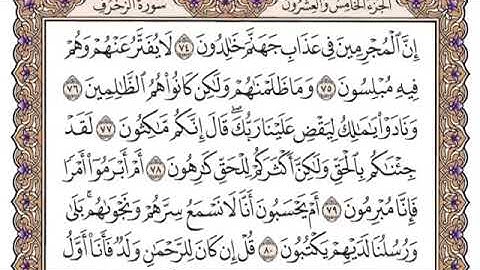 الجزء الخامس والعشرون سورة الزخرف
إِنَّ ٱلْمُجْرِمِينَ فِى عَذَابِ جَهَنَّمَ خَٰلِدُونَ ٧٤ لَا يُفَتَّرُ عَنْهُمْ وَهُمْ
فِيهِ مُبْلِسُونَ ٧٥ وَمَا ظَلَمْنَٰهُمْ وَلَٰكِن كَانُوا۟ هُمُ ٱلظَّٰلِمِينَ ٧٦
وَنَادَوْا۟ يَٰمَٰلِكُ لِيَقْضِ عَلَيْنَا رَبُّكَ ۖ قَالَ إِنَّكُم مَّٰكِثُونَ ٧٧ لَقَدْ
جِئْنَٰكُم بِٱلْحَقِّ وَلَٰكِنَّ أَكْثَرَكُمْ لِلْحَقِّ كَٰرِهُونَ ٧٨ أَمْ أَبْرَمُوٓا۟ أَمْرًا
فَإِنَّا مُبْرِمُونَ ٧٩ أَمْ يَحْسَبُونَ أَنَّا لَا نَسْمَعُ سِرَّهُمْ وَنَجْوَىٰهُم ۚ بَلَىٰ
وَرُسُلُنَا لَدَيْهِمْ يَكْتُبُونَ ٨٠ قُلْ إِن كَانَ لِلرَّحْمَٰنِ وَلَدٌ فَأَنَا۠ أَوَّلُ